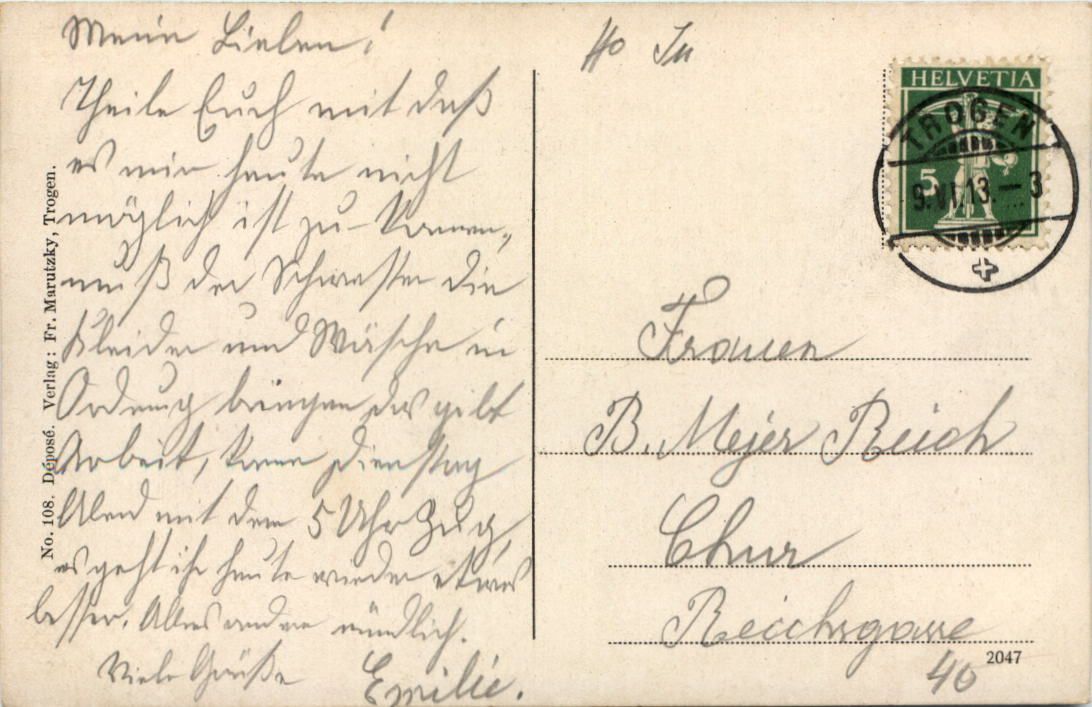 Meine Lieben!
Theile Euch mit daß
es mir heute nicht
möglich ist zu kommen,
muß der Schwester die
Kleider und Wäsche in
Ordnung bringen das gibt
Arbeit, komme Dienstag
Abend mit dem 5 Uhr Zug,
es geht ihr heute wieder etwas
besser. Alles andere mündlich.
Viele Grüße Emilie.
No. 108. Déposé. Verlag: Fr. Marutzky, Trogen.
HELVETIA
5
TROGEN
9.VI.13.–3
Frauen
B. Mejer Reich
Chur
Reichsgasse
40
2047